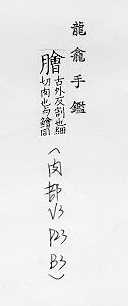 龍龕手鑑
膾古外反割也細
切肉也與鱠同
(肉部
V3
P23
B3)